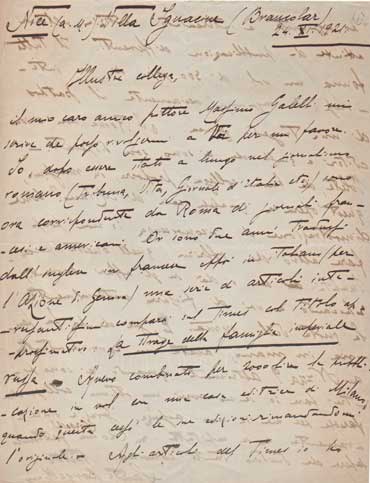 Nice (a. m.) Villa Ignacine (Brancolar)
24. XI. 1921
Illustre collega,
il mio caro amico pittore Massimo Galelli mi
scrive che posso rivolgermi a Voi per un favore.
Io dopo essere stato a lungo nel giornalismo
romano (Tribuna, Vita, Giornale d'Italia etc) sono
ora corrispondente da Roma di giornali fran-
cesi e americani. Or sono due anni tradussi
dall'inglese in francese eppoi in italiano per
l'Azione di Genova) una serie di articoli inte-
-ressantissimi comparsi sul Times col titolo ap-
-prossimativo La Strage della famiglia imperiale
russa. Avevo combinato per 2000 lire la pubbli-
-cazione in vol. con una casa editrice di Milano,
quando questa cessò le sue edizioni rimandandomi
l'originale. Agli articoli del Times io ho